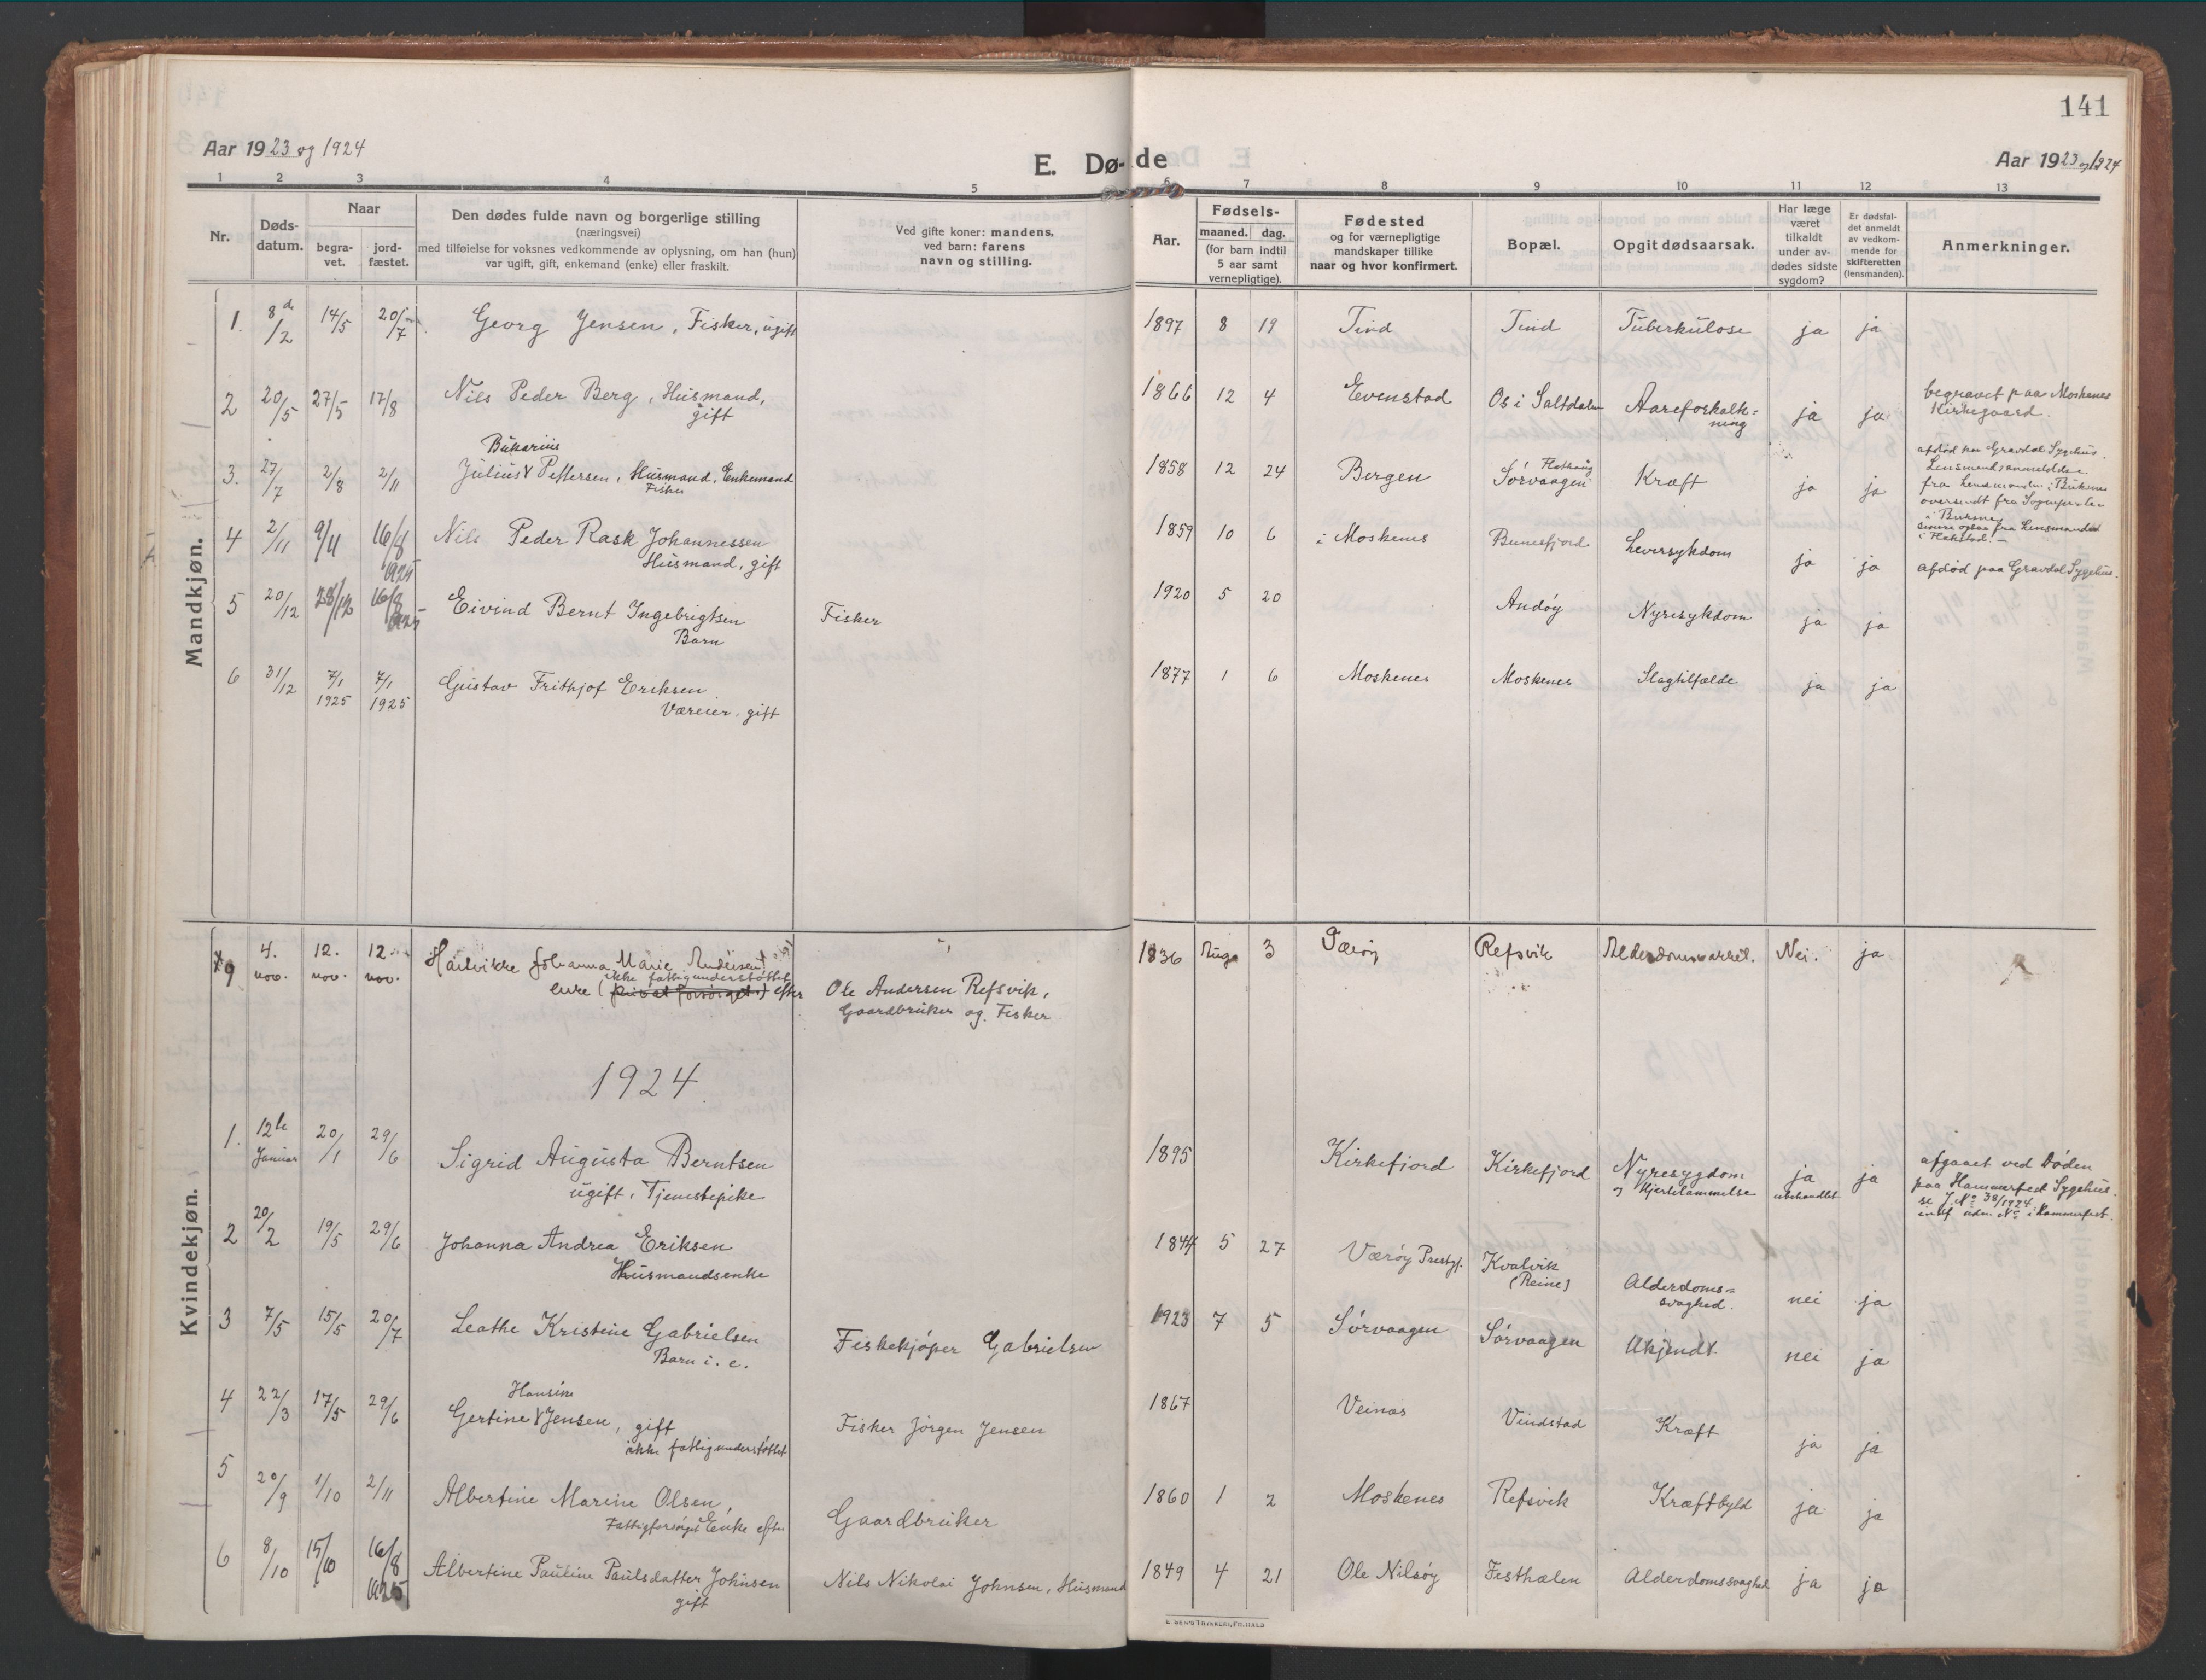 141
Aar 1923 og 1924
E. Dø-de
Aar 1923 og 1924
1 2 3 4 5 6 7 8 9 10 11 12 13
Nr.
Døds-
datum.
Naar
begra-
vet.
jord-
fæstet.
Den dødes fulde navn og borgerlige stilling
(næringsvei)
med tilføielse for voksnes vedkommende av oplysning, om han (hun)
var ugift, gift, enkemand (enke) eller fraskilt.
Ved gifte koner: mandens,
ved barn: farens
navn og stilling.
Aar.
Fødsels-
maaned. dag.
(for barn indtil
5 aar samt
vernepligtige).
Fødested
og for værnepligtige
mandskaper tillike
naar og hvor konfirmert.
Bopæl.
Opgit dødsaarsak.
Har læge
været
tilkaldt
under av-
dødes sidste
sygdom?
Er dødsfal-
det anmeldt
av vedkom-
mende for
skifteretten
(lensmanden).
Anmerkninger.
Mandkjøn.
1. 8de/2 14/5 20/7 Georg Jensen, Fisker, ugift 1897 8 19 Tind Tind Tuberkulose ja ja
2 20/5 27/5 17/8 Nils Peder Berg, Husmand,
gift
1866 12 4 Evenstad Os i Saltdalen Aareforkalk-
ning
ja ja
begravet paa Moskenes
Kirkegaard.
Bukarius
3. 27/7 2/8 2/11 Julius V Pettersen, Husmand, Enkemand
Fisker
1858 12 24 Bergen Sørvaagen Kræft ja ja
afdød paa Gravdal Sygehus.
Lensmandsanmeldelse
fra Lensmanden i Buksnes
oversendt fra Sognepresten
i Buksnes
senere ogsaa fra Lensmanden
i Flakstad. -
4 2/11 9/11 16/8 1925 Nils Peder Rask Johannessen
Husmand, gift
1859 10 6 i Moskenes Bunesfjord Leversykdom ja ja afdød paa Gravdal Sygehus.
5 20/12 28/12 16/8 1925 Eivind Bernt Ingebrigtsen
Barn
Fisker 1920 5 20 Andøy Nyresykdom ja ja
6 31/12 7/1 1925 7/1 1925 Gustav Frithjof Eriksen
Væreier, gift
1877 1 6 Moskenes Moskenes Slagtilfælde ja ja
Kvindekjøn.
9 4. nov. 12. nov. 12. nov. Hartvikke Johanna Marie Andersen
ikke fattigunderstøttet
enke (privat forsørget.) efter
Ole Andersen Refsvik,
Gaardbruker og Fisker
1836 Aug. 3 Værøy Refsvik Nei. ja
1924
1. 12te Januar 20/1 29/6 Sigrid Augusta Berntsen
ugift, Tjenestepike
1895 Kirkefjord Kirkefjord Nyresygdom
og Hjertelammelse
ja
ubehandlet
ja
afgaaet ved Døden
paa Hammerfest Sygehus.
se J. No 38/1924
2 20/2 19/5 29/6 Johanna Andrea Eriksen
Husmandsenke
1844 5 27 Værøy Prestgj. Kvalvik
(Reine)
Alderdoms-
svaghed.
nei ja
3 7/5 15/5 20/7 Leathe Kristine Gabrielsen
Barn i. e.
Fiskekjøper Gabrielsen 1923 7 5 Sørvaagen Sørvaagen Ukjendt nei ja
Hansine
4 22/3 17/5 29/6 Gertine V Jensen, gift
ikke fattigunderstøttet
Fisker Jørgen Jensen 1867 Veinas Vindstad Kræft ja ja
5 20/9 1/10 2/11 Albertine Marine Olsen,
Fattigforsørget Enke efter
Gaardbruker 1860 1 2 Moskenes Refsvik Kræftbyld ja ja
6 8/10 15/10 16/8 1925 Albertine Pauline Paulsdatter Johnsen
gift
Nils Nikolai Johnsen, Husmand 1849 4 21 Ole Nilsøy Festhælen Alderdomssvaghed ja ja